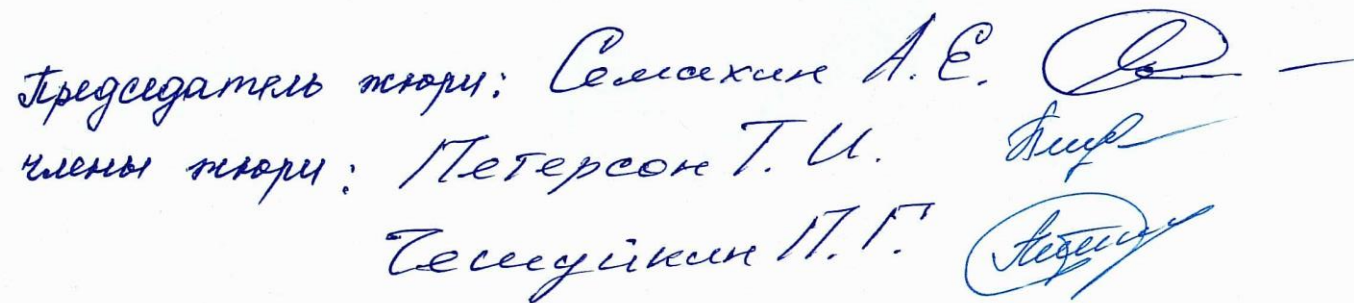 Председатель жюри: Семахин А. Е.
члены жюри: Петерсон Т. И.
Чешуйкин П. Г.